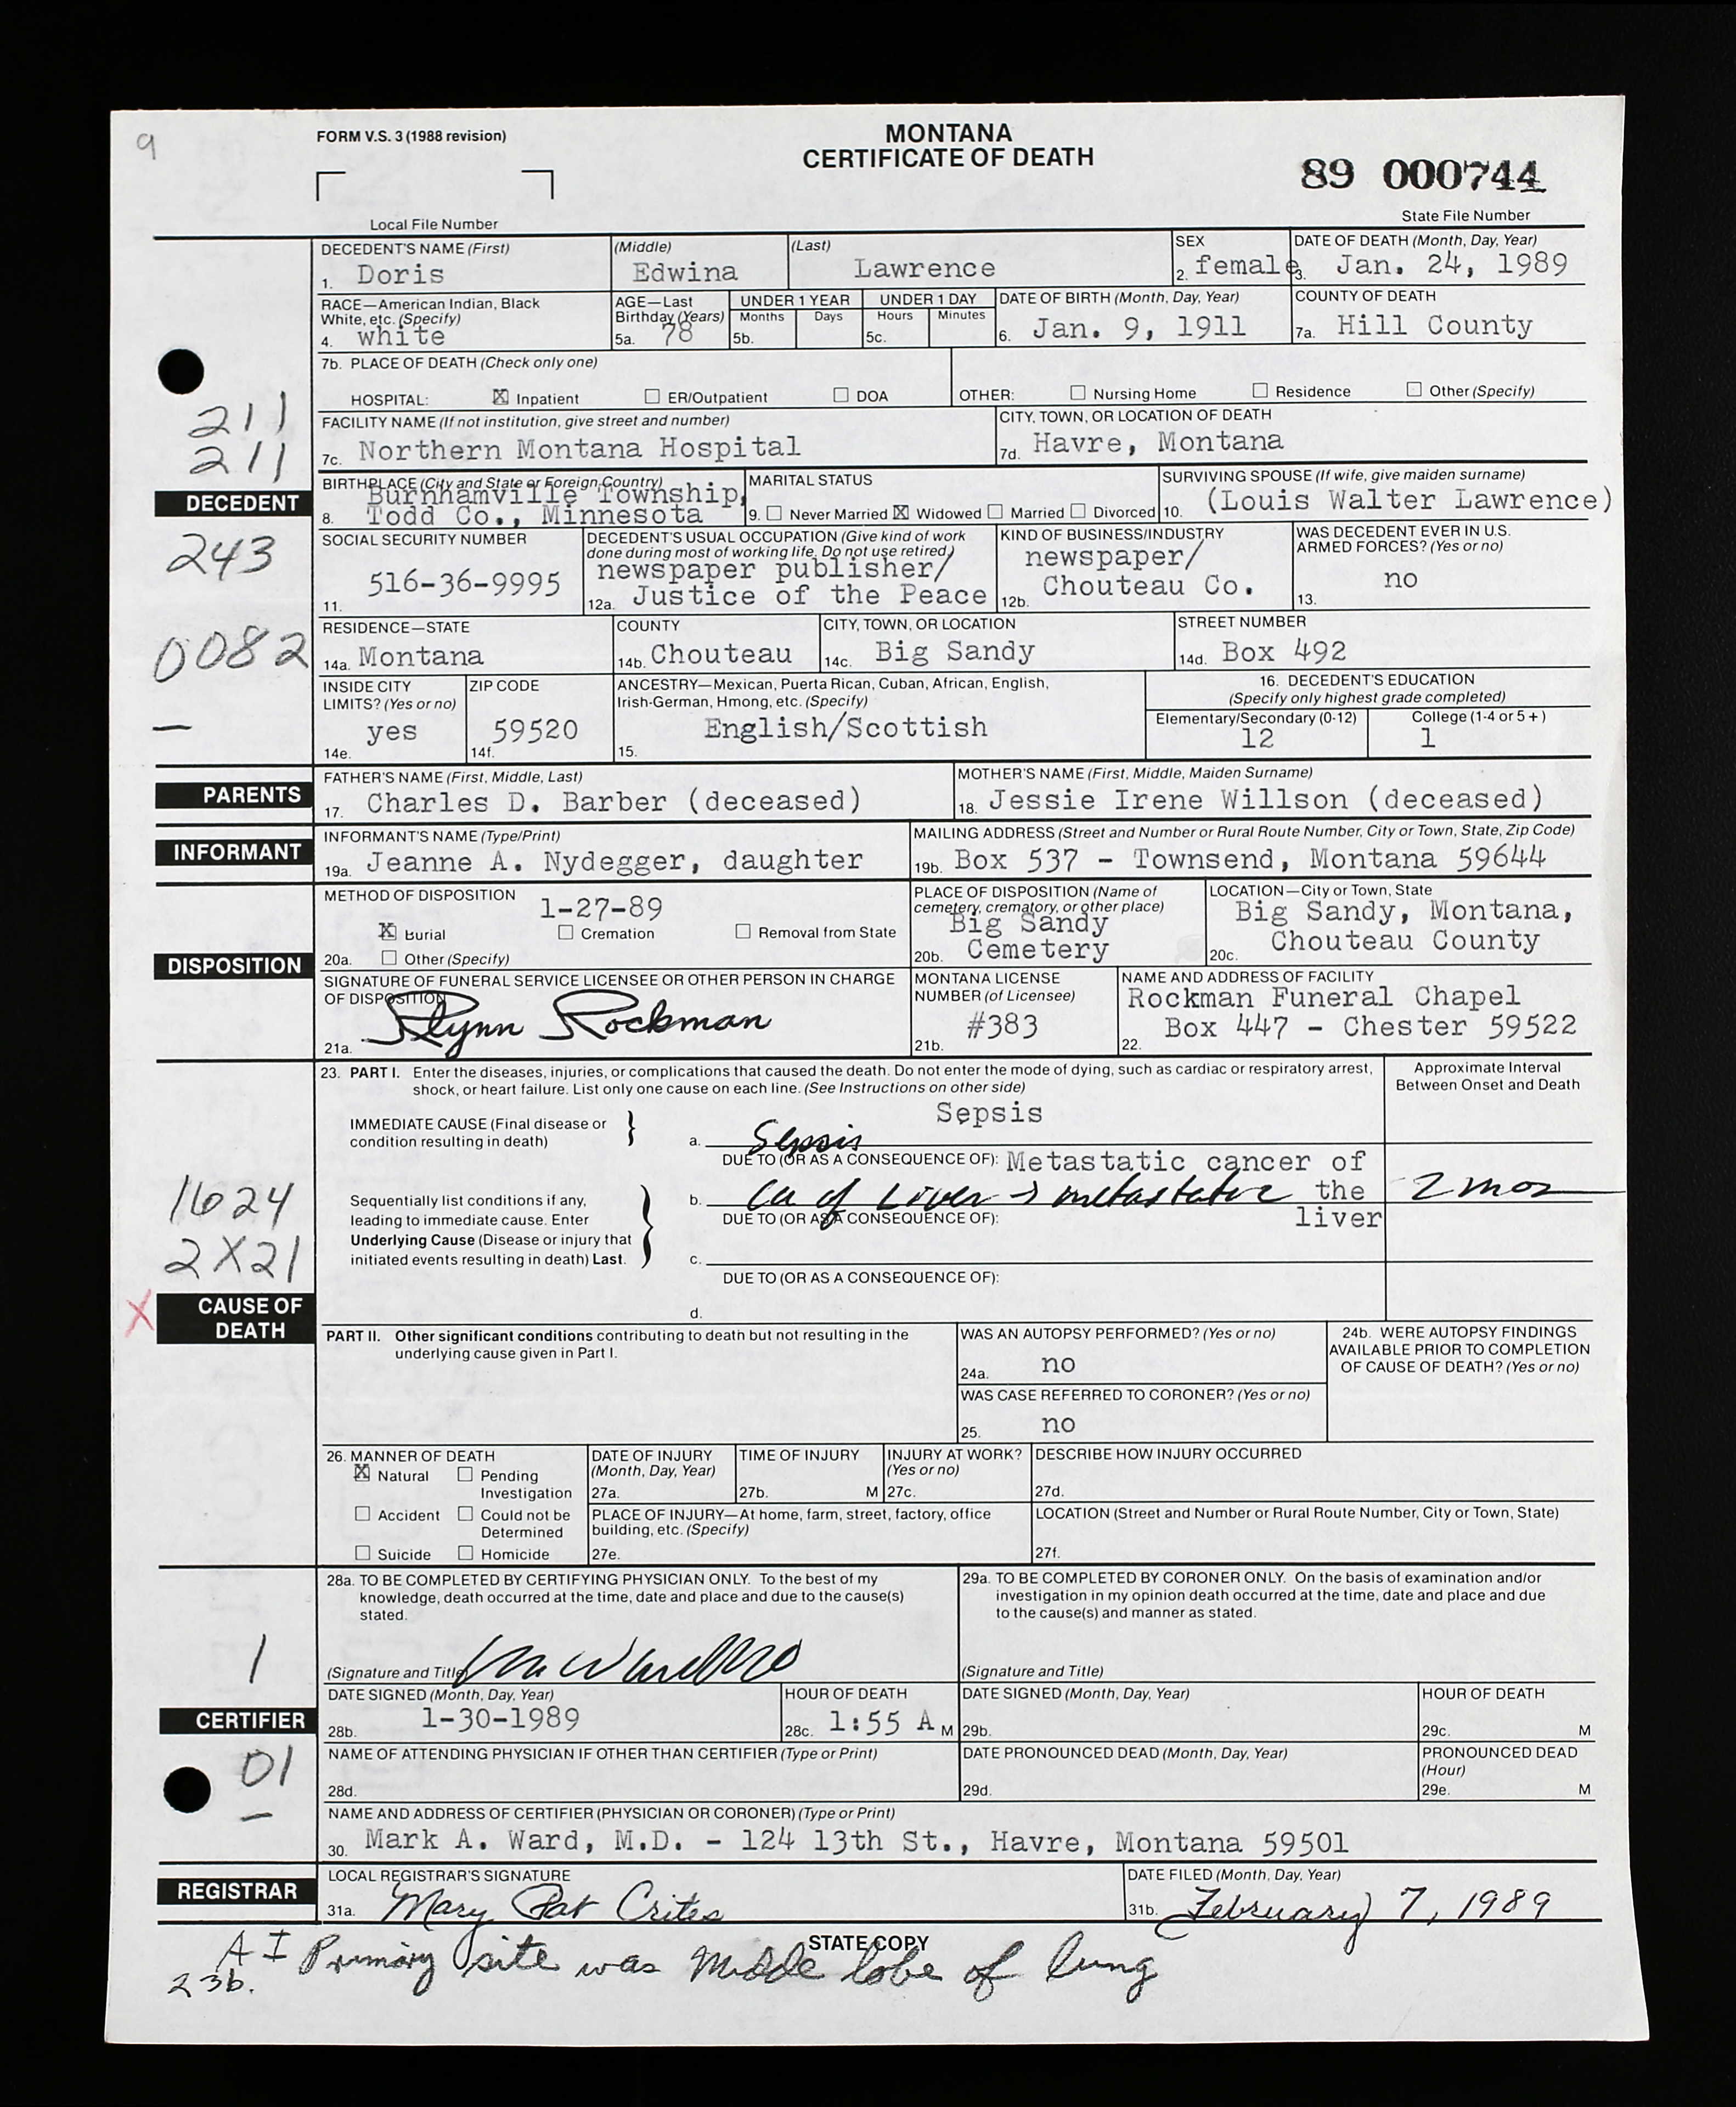 9
FORM V.S. 3 (1988 revision)
MONTANA
CERTIFICATE OF DEATH
89 000744
Local File Number
State File Number
DECEDENT'S NAME (First) (Middle) (Last) SEX DATE OF DEATH (Month, Day, Year)
1. Doris Edwina Lawrence 2. female 3. Jan. 24, 1989
RACE—American Indian, Black White, etc. (Specify)
4. white
AGE—Last Birthday (Years)
5a. 78
UNDER 1 YEAR
Months Days
5b.
UNDER 1 DAY
Hours Minutes
5c.
DATE OF BIRTH (Month, Day, Year)
6. Jan. 9, 1911
COUNTY OF DEATH
7a. Hill County
7b. PLACE OF DEATH (Check only one)
HOSPITAL: ☒ Inpatient ☐ ER/Outpatient ☐ DOA OTHER: ☐ Nursing Home ☐ Residence ☐ Other (Specify)
211
211
FACILITY NAME (If not institution, give street and number)
7c. Northern Montana Hospital
CITY, TOWN, OR LOCATION OF DEATH
7d. Havre, Montana
DECEDENT
BIRTHPLACE (City and State or Foreign Country)
Burnhamville Township,
8. Todd Co., Minnesota
MARITAL STATUS
9. ☐ Never Married ☒ Widowed ☐ Married ☐ Divorced
SURVIVING SPOUSE (If wife, give maiden surname)
10. (Louis Walter Lawrence)
243
SOCIAL SECURITY NUMBER
11. 516-36-9995
DECEDENT'S USUAL OCCUPATION (Give kind of work
done during most of working life. Do not use retired.)
newspaper publisher/
12a. Justice of the Peace
KIND OF BUSINESS/INDUSTRY
newspaper/
12b. Chouteau Co.
WAS DECEDENT EVER IN U.S.
ARMED FORCES? (Yes or no)
13. no
0082
RESIDENCE—STATE
14a. Montana
COUNTY
14b. Chouteau
CITY, TOWN, OR LOCATION
14c. Big Sandy
STREET NUMBER
14d. Box 492
—
INSIDE CITY
LIMITS? (Yes or no)
14e. yes
ZIP CODE
14f. 59520
ANCESTRY—Mexican, Puerta Rican, Cuban, African, English,
Irish-German, Hmong, etc. (Specify)
15. English/Scottish
16. DECEDENT'S EDUCATION
(Specify only highest grade completed)
Elementary/Secondary (0-12) College (1-4 or 5+)
12 1
PARENTS
FATHER'S NAME (First, Middle, Last)
17. Charles D. Barber (deceased)
MOTHER'S NAME (First, Middle, Maiden Surname)
18. Jessie Irene Willson (deceased)
INFORMANT
INFORMANT'S NAME (Type/Print)
19a. Jeanne A. Nydegger, daughter
MAILING ADDRESS (Street and Number or Rural Route Number, City or Town, State, Zip Code)
19b. Box 537 - Townsend, Montana 59644
DISPOSITION
METHOD OF DISPOSITION
1-27-89
☒ Burial ☐ Cremation ☐ Removal from State
20a. ☐ Other (Specify)
PLACE OF DISPOSITION (Name of
cemetery, crematory, or other place)
Big Sandy
20b. Cemetery
LOCATION—City or Town, State
Big Sandy, Montana,
20c. Chouteau County
SIGNATURE OF FUNERAL SERVICE LICENSEE OR OTHER PERSON IN CHARGE
OF DISPOSITION
21a. Flynn Rockman
MONTANA LICENSE
NUMBER (of Licensee)
21b. #383
NAME AND ADDRESS OF FACILITY
Rockman Funeral Chapel
22. Box 447 - Chester 59522
23. PART I. Enter the diseases, injuries, or complications that caused the death. Do not enter the mode of dying, such as cardiac or respiratory arrest,
shock, or heart failure. List only one cause on each line. (See Instructions on other side)
Approximate Interval
Between Onset and Death
Sepsis
IMMEDIATE CAUSE (Final disease or
condition resulting in death)
a. Sepsis
DUE TO (OR AS A CONSEQUENCE OF): Metastatic cancer of
1624
2X21
Sequentially list conditions if any,
leading to immediate cause. Enter
Underlying Cause (Disease or injury that
initiated events resulting in death) Last.
b. Ca of Liver → metastatic the 2 mos
DUE TO (OR AS A CONSEQUENCE OF): liver
c.
DUE TO (OR AS A CONSEQUENCE OF):
d.
X
CAUSE OF
DEATH
PART II. Other significant conditions contributing to death but not resulting in the
underlying cause given in Part I.
WAS AN AUTOPSY PERFORMED? (Yes or no)
24a. no
24b. WERE AUTOPSY FINDINGS
AVAILABLE PRIOR TO COMPLETION
OF CAUSE OF DEATH? (Yes or no)
WAS CASE REFERRED TO CORONER? (Yes or no)
25. no
26. MANNER OF DEATH
☒ Natural ☐ Pending Investigation
☐ Accident ☐ Could not be Determined
☐ Suicide ☐ Homicide
DATE OF INJURY
(Month, Day, Year)
27a.
TIME OF INJURY
27b. M
INJURY AT WORK?
(Yes or no)
27c.
DESCRIBE HOW INJURY OCCURRED
27d.
PLACE OF INJURY—At home, farm, street, factory, office
building, etc. (Specify)
27e.
LOCATION (Street and Number or Rural Route Number, City or Town, State)
27f.
28a. TO BE COMPLETED BY CERTIFYING PHYSICIAN ONLY. To the best of my
knowledge, death occurred at the time, date and place and due to the cause(s)
stated.
(Signature and Title)
29a. TO BE COMPLETED BY CORONER ONLY. On the basis of examination and/or
investigation in my opinion death occurred at the time, date and place and due
to the cause(s) and manner as stated.
(Signature and Title)
1
CERTIFIER
DATE SIGNED (Month, Day, Year)
28b. 1-30-1989
HOUR OF DEATH
28c. 1:55 A M
DATE SIGNED (Month, Day, Year)
29b.
HOUR OF DEATH
29c. M
01
—
NAME OF ATTENDING PHYSICIAN IF OTHER THAN CERTIFIER (Type or Print)
28d.
DATE PRONOUNCED DEAD (Month, Day, Year)
29d.
PRONOUNCED DEAD
(Hour)
29e. M
NAME AND ADDRESS OF CERTIFIER (PHYSICIAN OR CORONER) (Type or Print)
30. Mark A. Ward, M.D. - 124 13th St., Havre, Montana 59501
REGISTRAR
LOCAL REGISTRAR'S SIGNATURE
31a. Mary Pat Crites
DATE FILED (Month, Day, Year)
31b. February 7, 1989
STATE COPY
A I Primary site was Middle lobe of lung
23b.